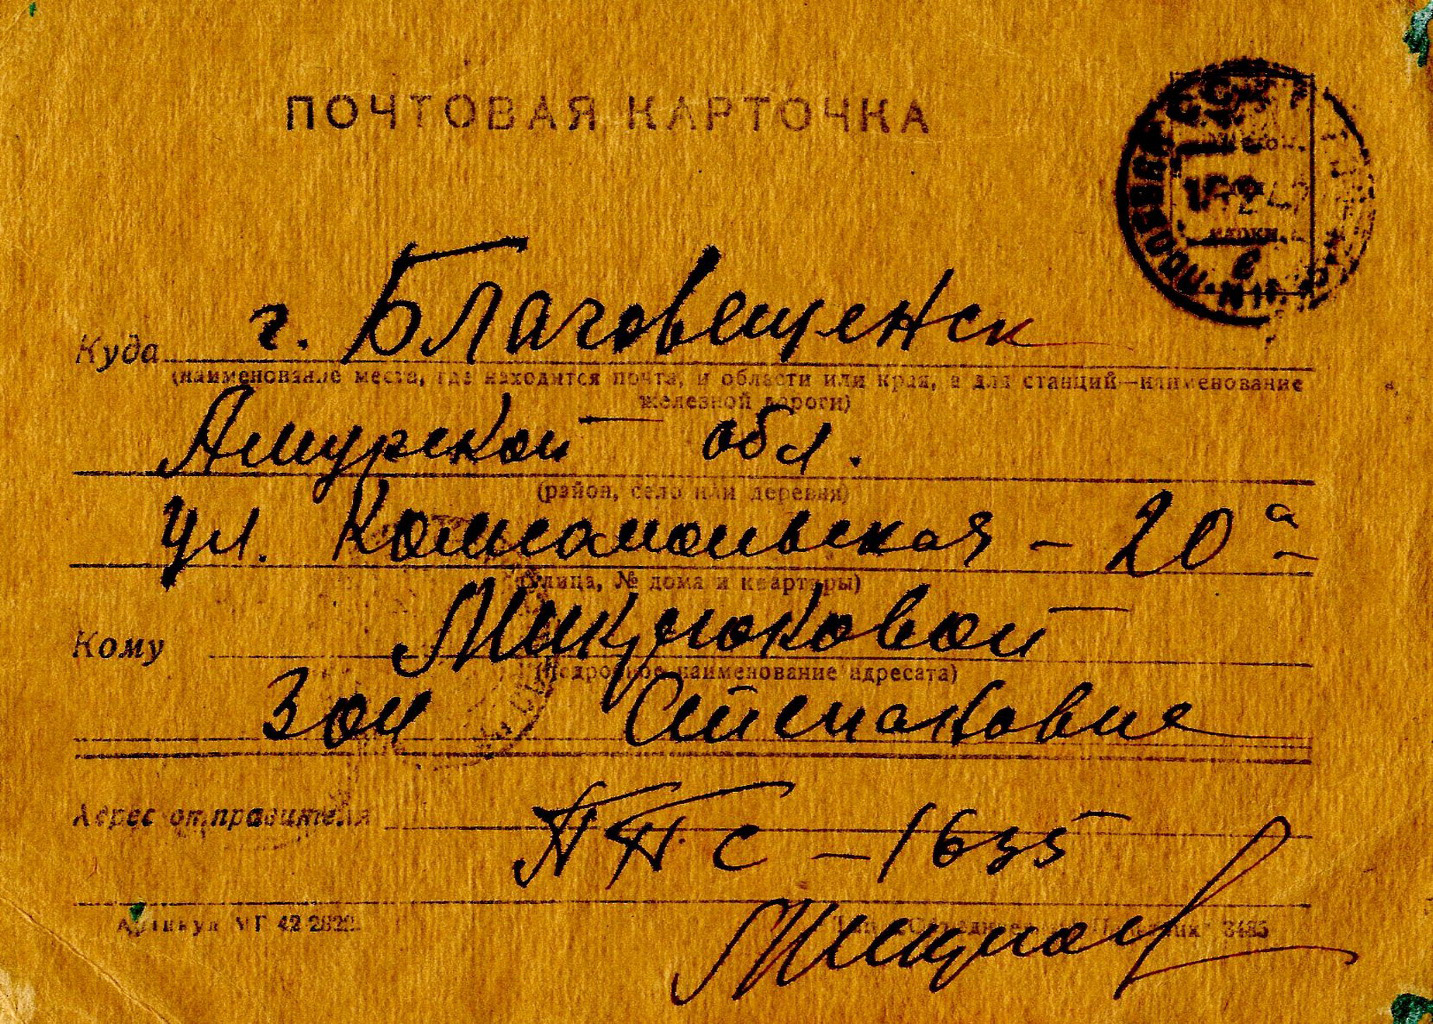 ПОЧТОВАЯ КАРТОЧКА
Куда г. Благовещенск
(наименование места, где находится почта, и области или края, а для станций—наименование
железной дороги)
Амурской обл.
(район, село или деревня)
ул. Комсомольская - 20 а
(улица, № дома и квартиры)
Кому Микрюковой
(подробное наименование адресата)
Зои Степановне
Адрес отправителя ППС - 1635
Артикул МГ 42
3485